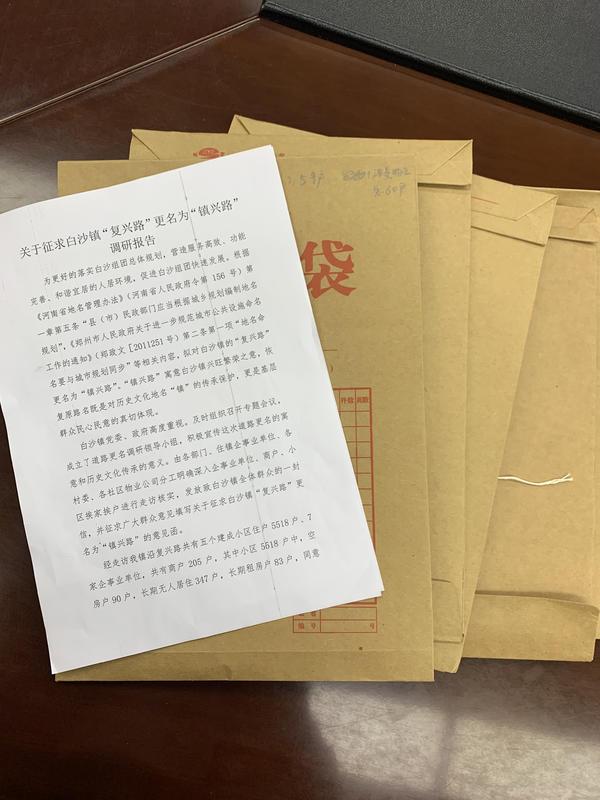 关于征求白沙镇“复兴路”更名为“镇兴路”
调研报告
为更好的落实白沙组团总体规划，营造服务高效、功能
完善、和谐宜居的人居环境，促进白沙组团快速发展。根据
《河南省地名管理办法》（河南省人民政府令第 156 号）第
一章第五条“县（市）民政部门应当根据城乡规划编制地名
规划”，《郑州市人民政府关于进一步规范城市公共设施命名
工作的通知》（郑政文［2011251 号）第二条第一项“地名命
名要与城市规划同步”等相关内容，拟对白沙镇的“复兴路”
更名为“镇兴路”。“镇兴路”寓意白沙镇兴旺繁荣之意，恢
复原路名既是对历史文化地名“镇”的传承保护，更是基层
群众民心民意的真切体现。
白沙镇党委、政府高度重视。及时组织召开专题会议，
成立了道路更名调研领导小组，积极宣传这次道路更名的寓
意和历史文化传承的意义。由各部门、住镇企事业单位、各
村委、各社区物业公司分工明确深入企事业单位、商户、小
区挨家挨户进行走访核实，发放致白沙镇全体群众的一封
信，并征求广大群众意见填写关于征求白沙镇“复兴路”更
名为“镇兴路”的意见函。
经走访我镇沿复兴路共有五个建成小区住户 5518 户、7
家企事业单位，共有商户 205 户，其中小区 5518 户中，空
房户 90 户，长期无人居住 347 户，长期租房户 83 户，同意
袋
件份
页数
编号
号